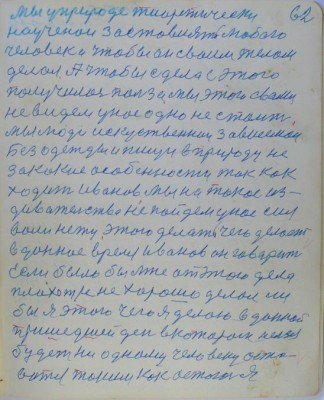 62
Мы у природе тиоритически
наученой заставлять любого
человека чтобы он своим телом
делал. А чтобы сделал с этого
получилась польза, мы этого сами
не видем у нас одно не стоит.
Мы люди искуственои зависемой
Без одежды и пищи в природу не
за какие особенности так как
ходит Иванов мы на такое из-
дивательство не пойдем у нас сил
воли нету этого делать чего делает
в данное время Иванов он говорит
если было бы мне от этого дела
плохо и не хорошо делал ли
бы я этого чего я делаю в данной
пришедшей ден в котором нельзя
будет ни одному человеку оста-
ватся таким как остался я